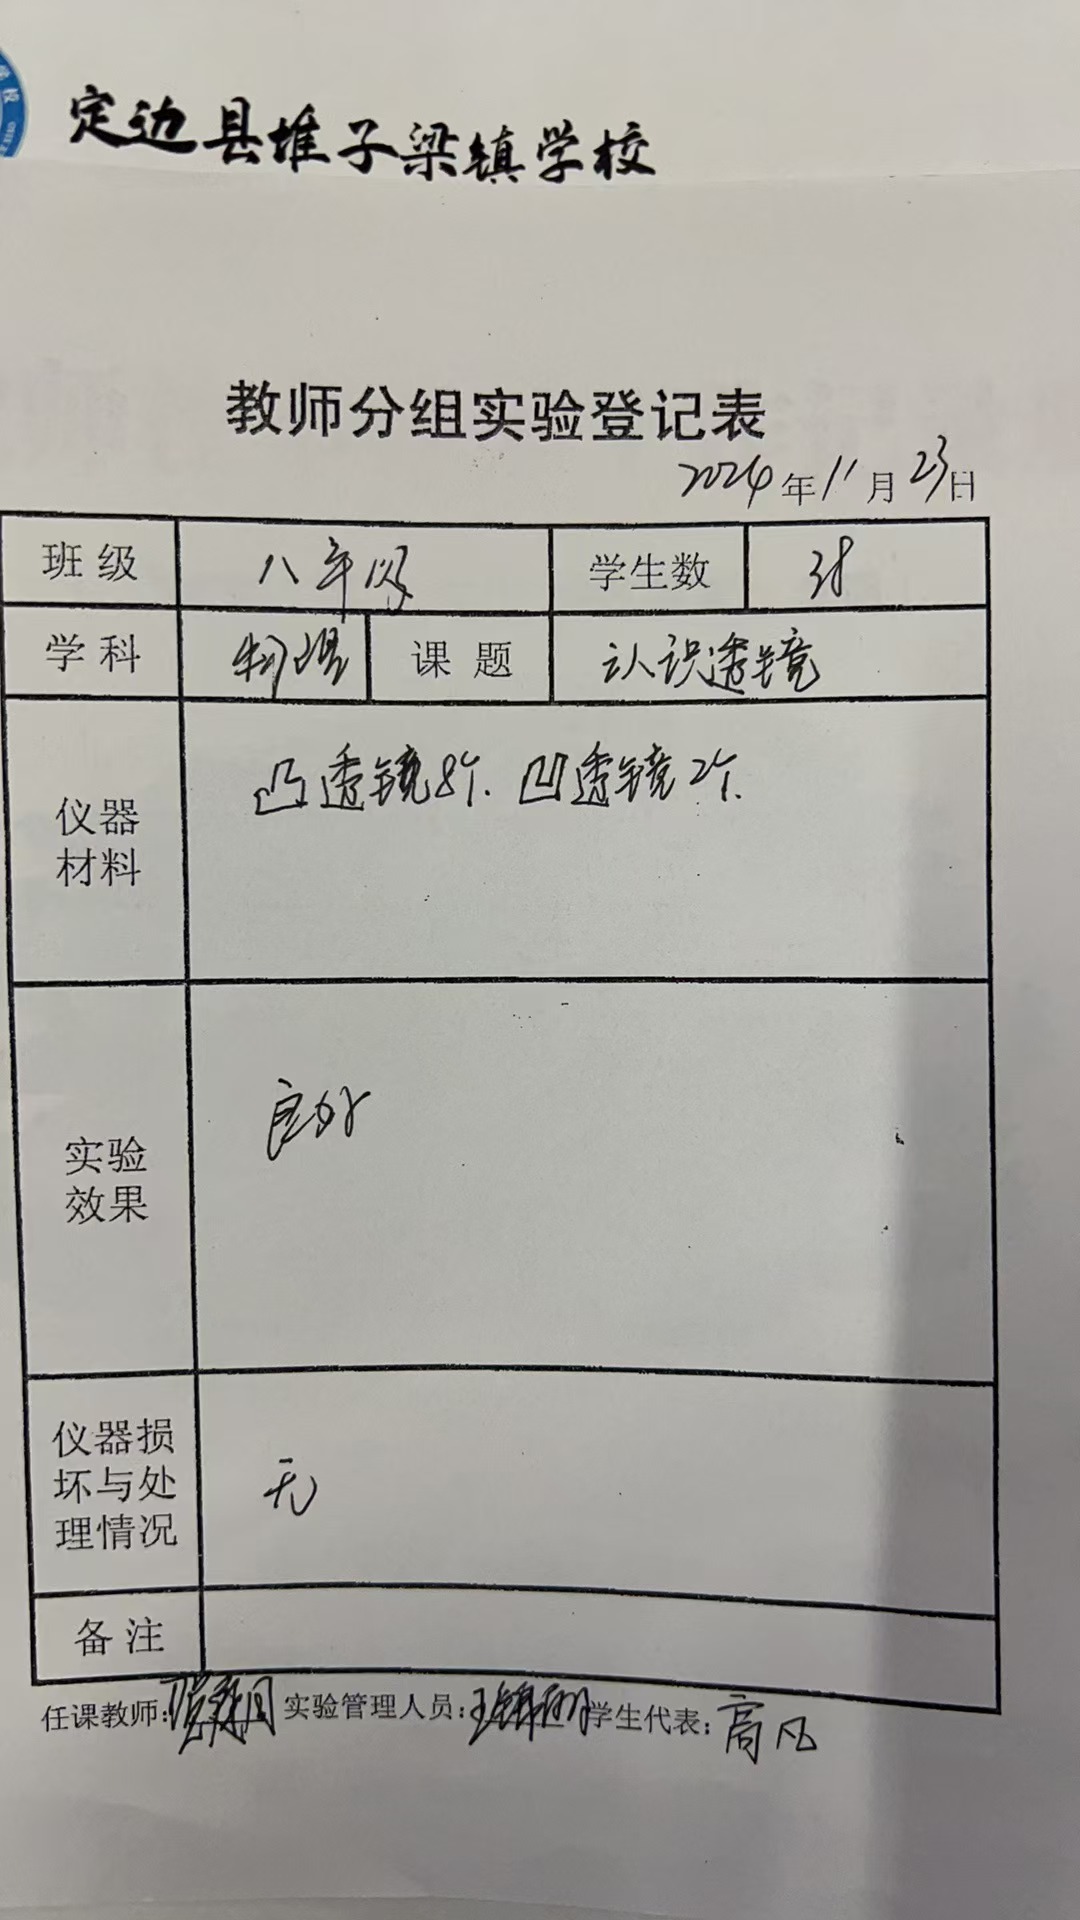 定边县堆子梁镇学校
教师分组实验登记表
2024年11月23日
班级 八年级 学生数
学科 物理 课题 认识透镜
仪器材料 凸透镜8个. 凹透镜2个.
实验效果 良好
仪器损坏与处理情况 无
备注
任课教师: 实验管理人员: 学生代表: 高凡